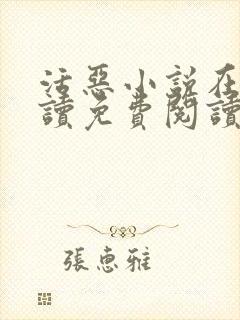 活惡小說在
讀免費閱讀
張惠雅